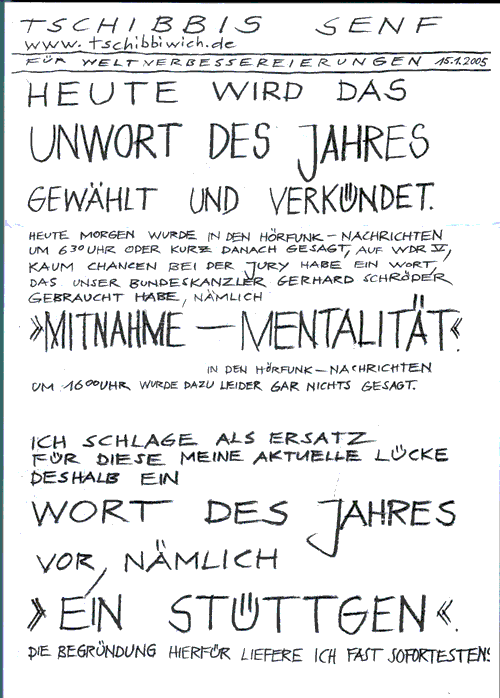 TSCHIBBIS SENF
www.tschibbiwich.de
FÜR WELTVERBESSEREIERUNGEN 15.1.2005
HEUTE WIRD DAS
UNWORT DES JAHRES
GEWÄHLT UND VERKÜNDET.
HEUTE MORGEN WURDE IN DEN HÖRFUNK-NACHRICHTEN
UM 630 UHR ODER KURZ DANACH GESAGT, AUF WDR V,
KAUM CHANCEN BEI DER JURY HABE EIN WORT,
DAS UNSER BUNDESKANZLER GERHARD SCHRÖDER
GEBRAUCHT HABE, NÄMLICH
»MITNAHME-MENTALITÄT«.
IN DEN HÖRFUNK-NACHRICHTEN
UM 1600 UHR WURDE DAZU LEIDER GAR NICHTS GESAGT.
ICH SCHLAGE ALS ERSATZ
FÜR DIESE MEINE AKTUELLE LÜCKE
DESHALB EIN
WORT DES JAHRES
VOR, NÄMLICH
»EIN STÜTTGEN«.
DIE BEGRÜNDUNG HIERFÜR LIEFERE ICH FAST SOFORTESTENS.